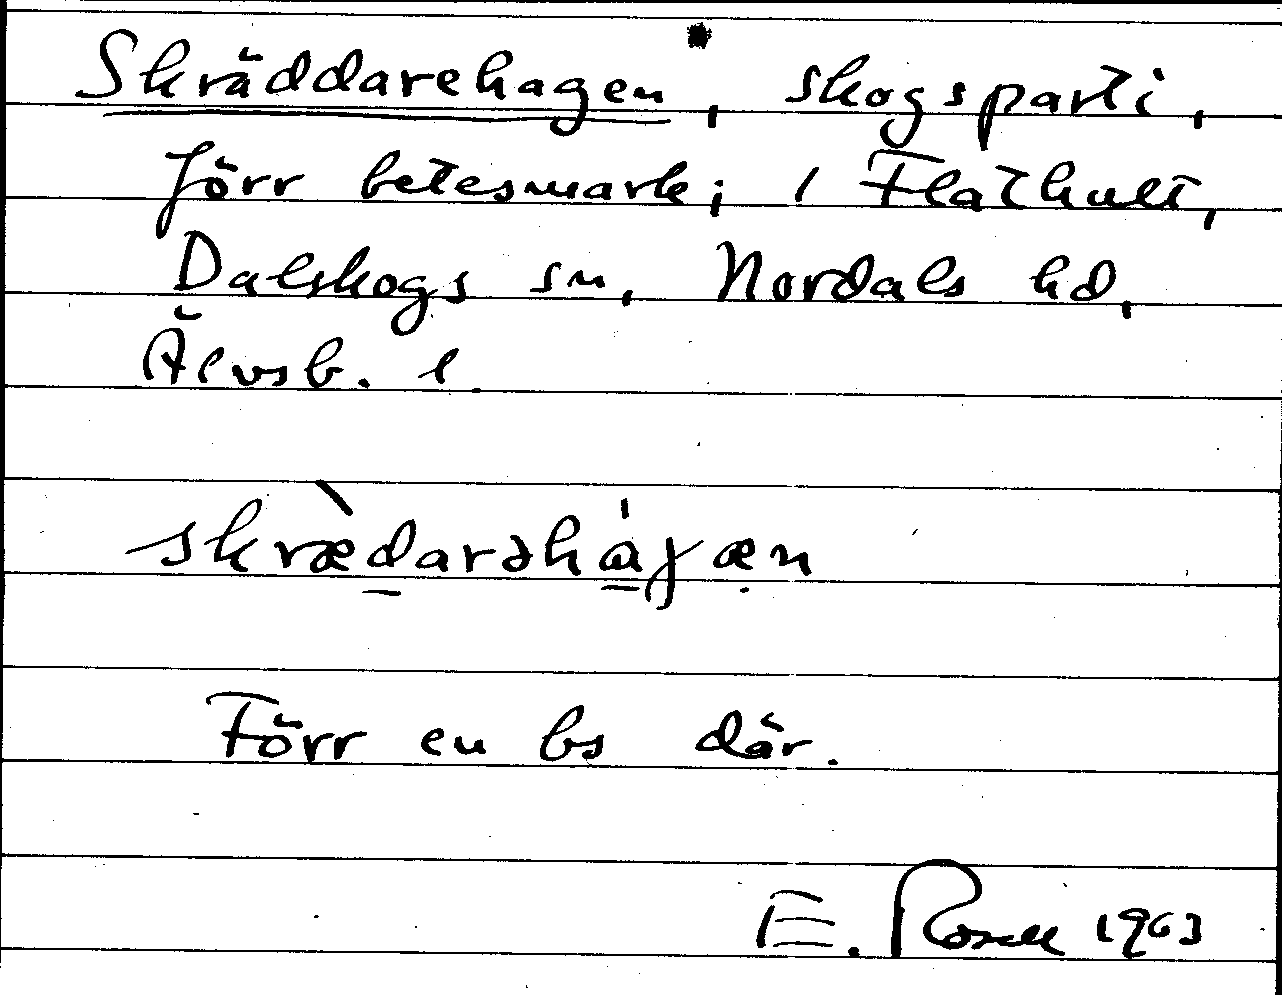 Skräddarehagen, skogsparti,
förr betesmark; i Flathult,
Dalskogs sn, Nordals hd,
Älvsb. l.
skræ̀darəhá̱γæn
Förr en bs där.
E. Rosell 1963